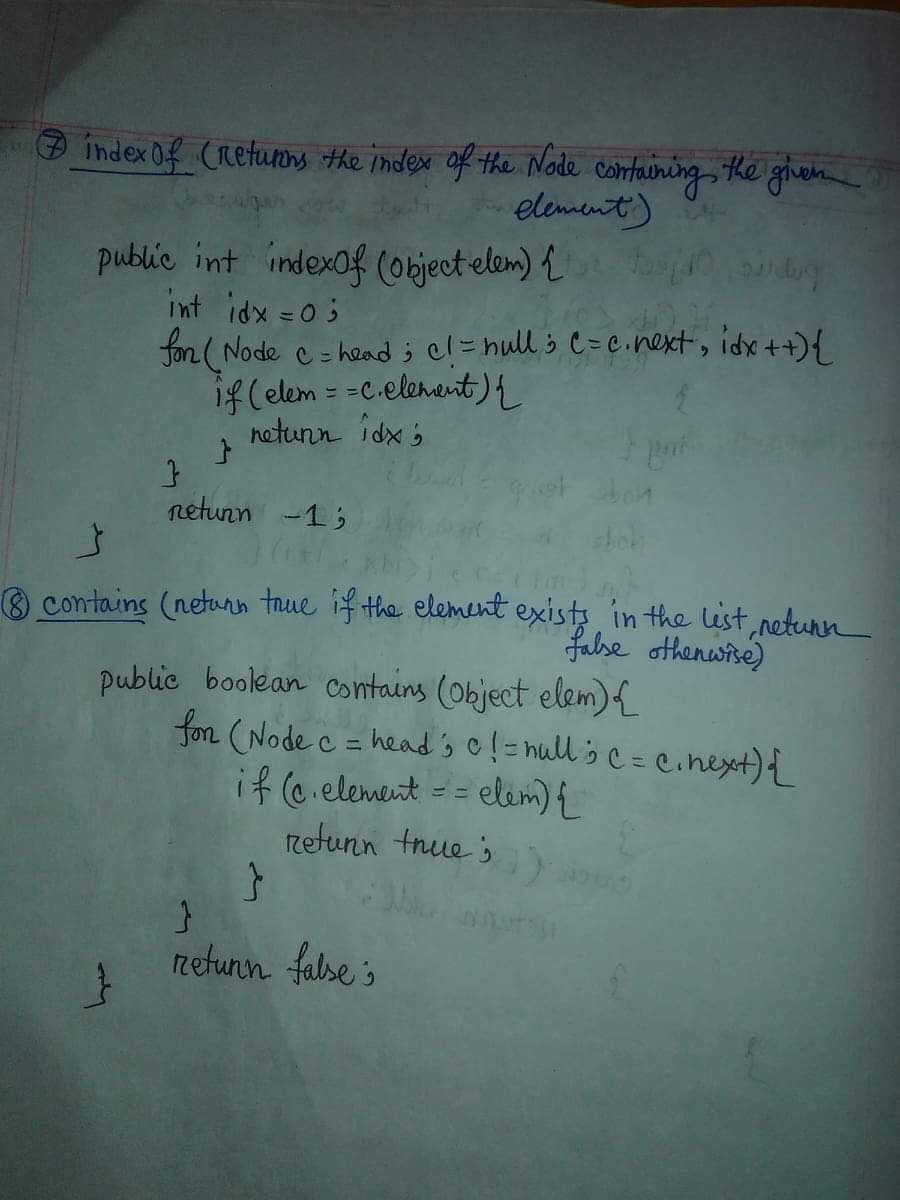 ⑦ indexOf (returns the index of the Node containing the given
element)
public int indexOf (object elem) {
int idx = 0 ;
for ( Node c = head ; c! = null ; c = c.next , idx ++) {
if (elem = = c.element) {
return idx ;
}
}
return -1 ;
}
⑧ contains (return true if the element exists in the list, return
false otherwise)
public boolean contains (Object elem) {
for (Node c = head ; c ! = null ; c = c.next) {
if (c.element = = elem) {
return true ;
}
}
return false ;
}